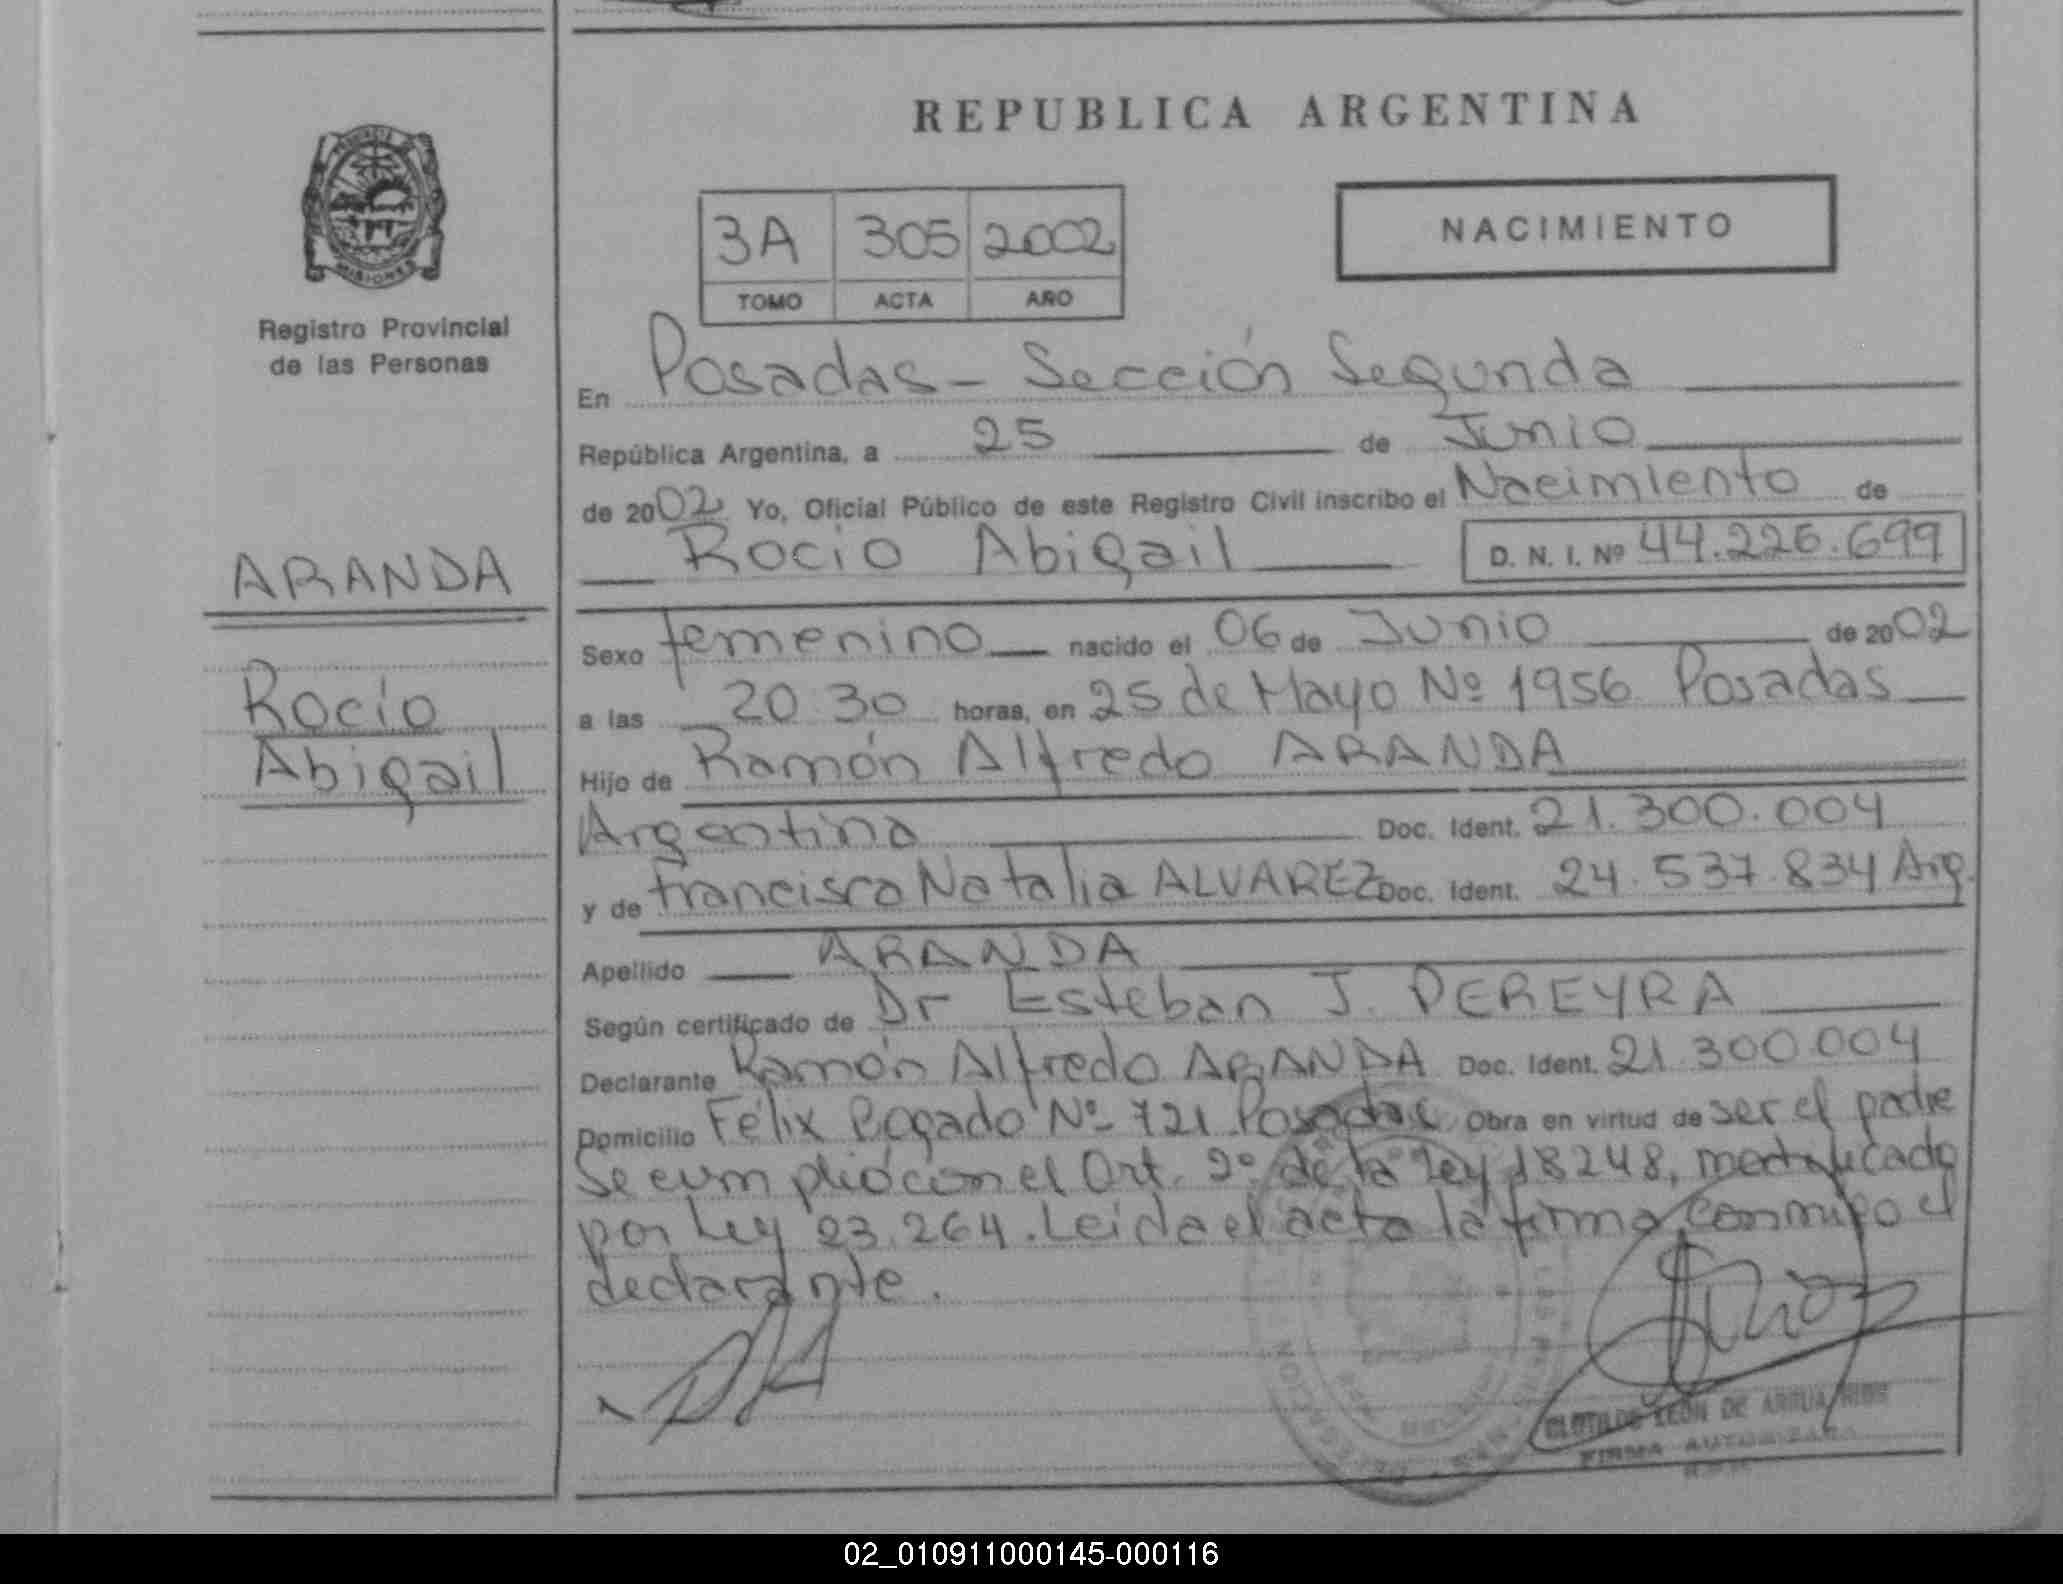 REPUBLICA ARGENTINA
PROVINCIA DE MISIONES
3A 305 2002
TOMO ACTA AÑO
NACIMIENTO
Registro Provincial
de las Personas
ARANDA
Rocío
Abigail
En Posadas - Sección Segunda
República Argentina, a 25 de Junio
de 2002 Yo, Oficial Público de este Registro Civil inscribo el Nacimiento de
Rocio Abigail D. N. I. Nº 44.226.699
Sexo femenino nacido el 06 de Junio de 2002
a las 20 30 horas, en 25 de Mayo Nº 1956 Posadas
Hijo de Ramón Alfredo ARANDA
Argentina Doc. Ident. 21.300.004
y de Francisca Natalia ALVAREZ Doc. Ident. 24.537.834 Arg.
Apellido ARANDA
Según certificado de Dr Esteban J. PEREYRA
Declarante Ramón Alfredo ARANDA Doc. Ident. 21 300 004
Domicilio Félix Bogado Nº 721 Posadas Obra en virtud de ser el padre
Se cumplió con el Art. 2º de la Ley 18248, modificado
por Ley 23.264. Leida el acta la firma conmigo el
declarante.
LEON DE
FIRMA AUTORIZADA
02_010911000145-000116